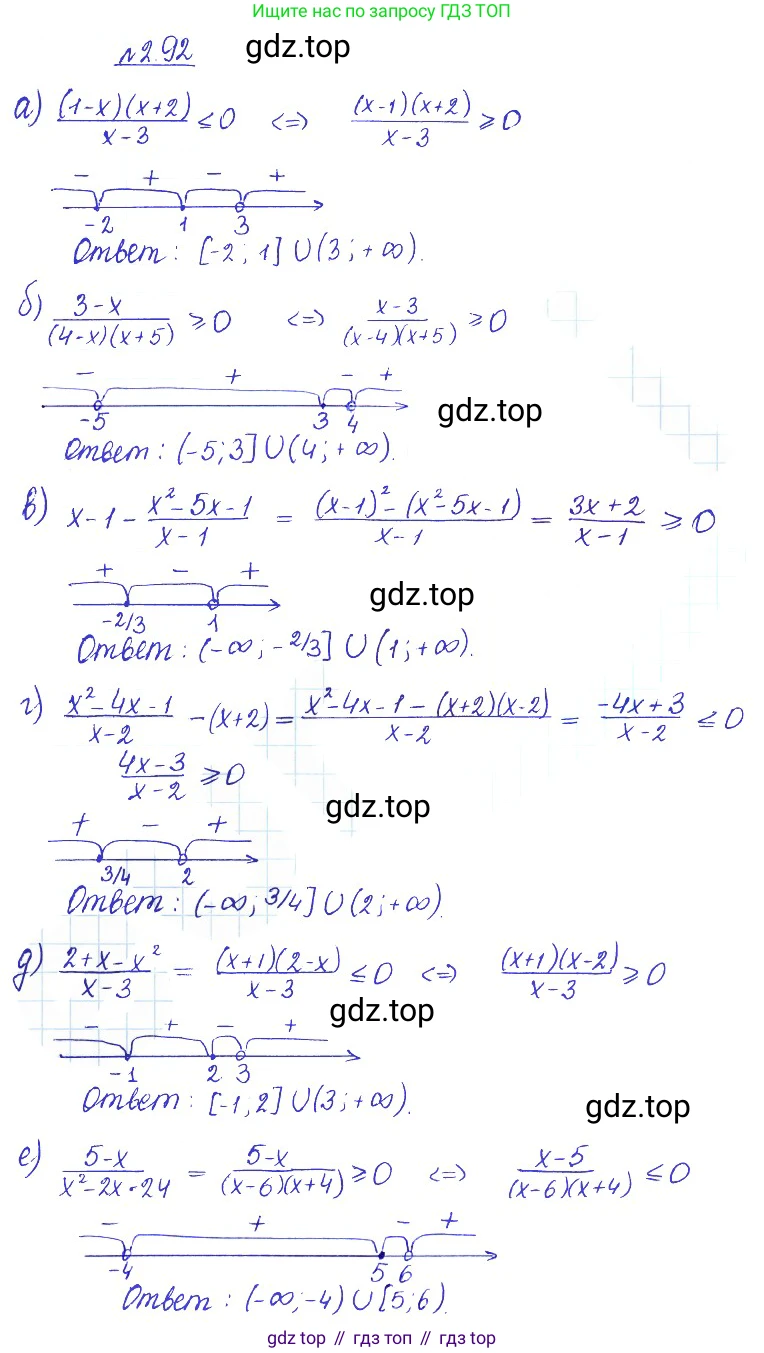 Ищите нас по запросу ГДЗ ТОП
№2.92 gdz.top
а) (1-x)(x+2)/(x-3) ≤ 0 <=> (x-1)(x+2)/(x-3) ≥ 0
- + - +
-2 1 3
Ответ: [-2; 1] ∪ (3; +∞).
б) (3-x)/((4-x)(x+5)) ≥ 0 <=> (x-3)/((x-4)(x+5)) ≥ 0
- + - +
-5 3 4 gdz.top
Ответ: (-5; 3] ∪ (4; +∞).
в) x-1 - (x²-5x-1)/(x-1) = ((x-1)²-(x²-5x-1))/(x-1) = (3x+2)/(x-1) ≥ 0
+ - +
-2/3 1 gdz.top
Ответ: (-∞; -2/3] ∪ (1; +∞).
г) (x²-4x-1)/(x-2) - (x+2) = (x²-4x-1-(x+2)(x-2))/(x-2) = (-4x+3)/(x-2) ≤ 0
(4x-3)/(x-2) ≥ 0
gdz.top
+ - +
3/4 2
Ответ: (-∞; 3/4] ∪ (2; +∞).
д) (2+x-x²)/(x-3) = (x+1)(2-x)/(x-3) ≤ 0 <=> (x+1)(x-2)/(x-3) ≥ 0
gdz.top
- + - +
-1 2 3
Ответ: [-1, 2] ∪ (3; +∞).
gdz.top
е) (5-x)/(x²-2x-24) = (5-x)/((x-6)(x+4)) ≥ 0 <=> (x-5)/((x-6)(x+4)) ≤ 0
- + - +
-4 5 6
Ответ: (-∞; -4) ∪ [5; 6).
gdz.top // гдз топ // гдз.top